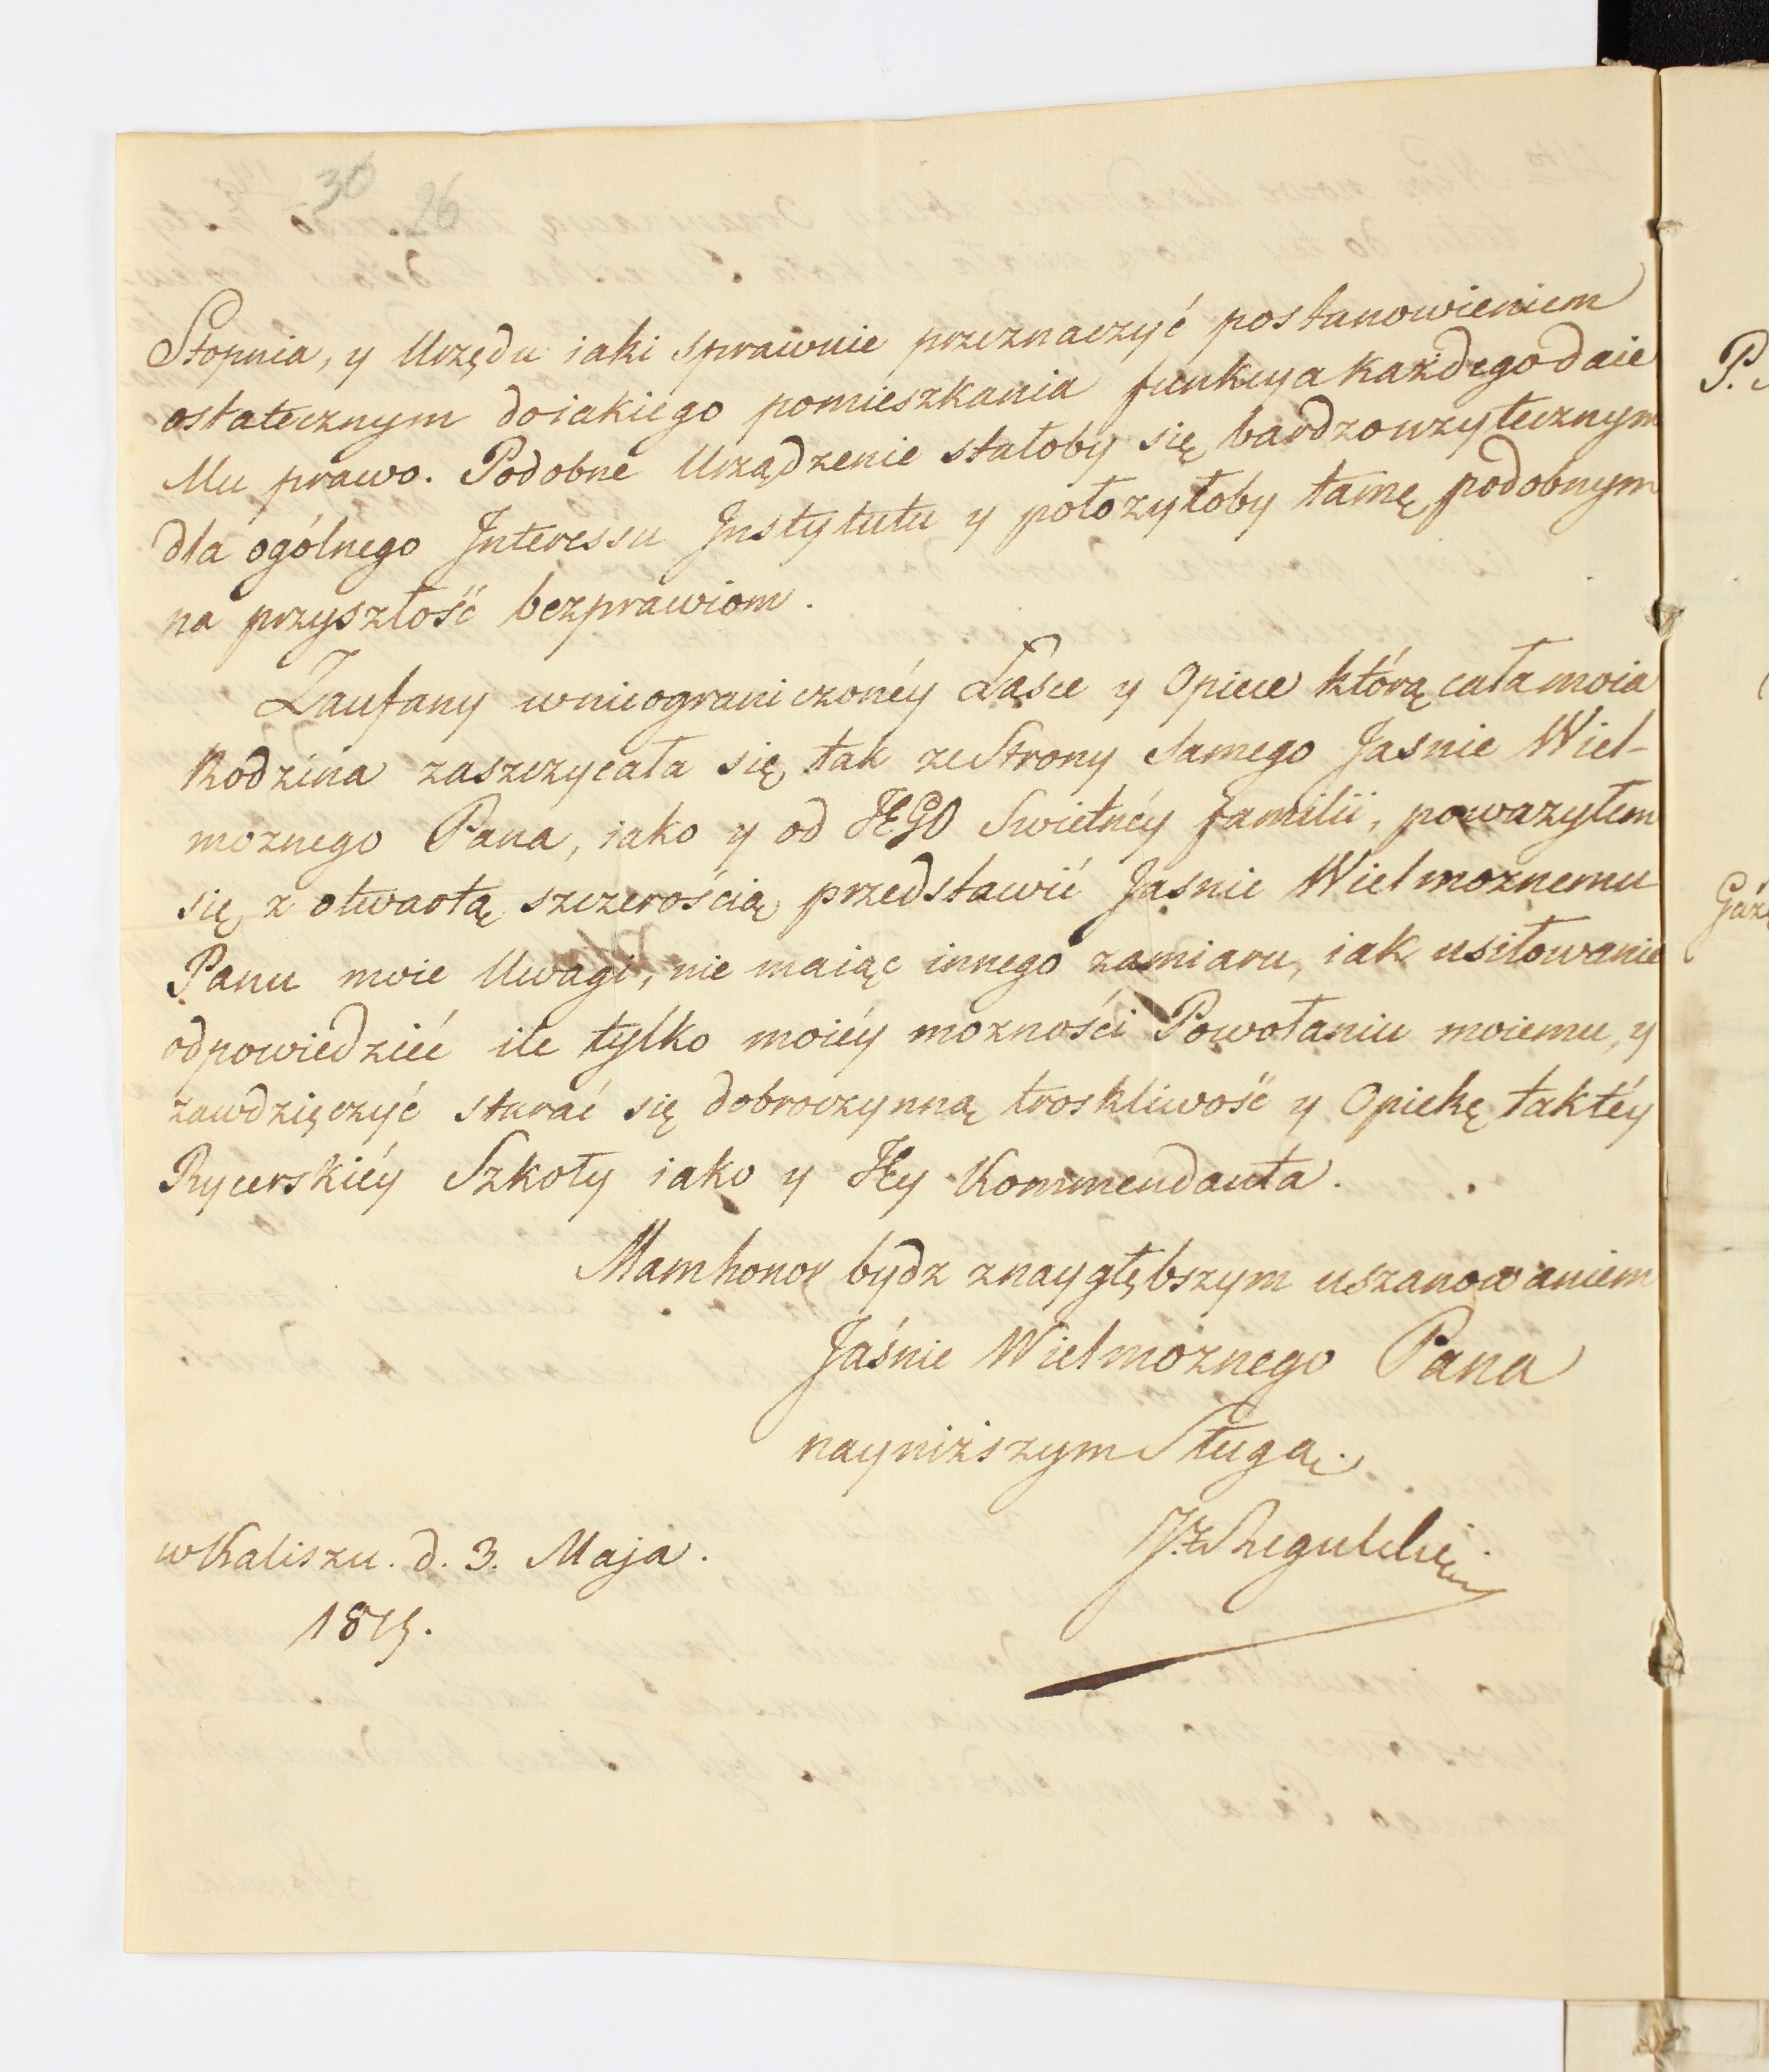 30
26
Stopnia, y Urzędu iaki sprawnie przeznaczyć postanowieniem
ostatecznym doiakiego pomieszkania funkcya każdego daie
Mu prawo. Podobne Urządzenie stałoby się bardzo uzytecznym
dla ogólnego Interessu Jnstytutu y połozyłoby tamę podobnym
na przyszłość bezprawiom.
Zaufany wnieograniczonéy Łasce y Opiece którą cała moia
Rodzina zaszczycała się tak ze Strony Samego Jasnie Wiel-
moznego Pana, iako y od JEGO Swietnéy familii, powazyłem
się z otwartą szczerością przedstawić Jasnie Wielmoznemu
Panu moie Uwagi, nie maiąc innego zamiaru, iak usiłowanie
odpowiedzieć ile tylko moiéy mozności Powołaniu moiemu, y
zawdzięczyć starać się dobroczynną troskliwość y Opiekę taktéy
Rycerskiéy Szkoły iako y JEy Kommendanta.
Mam honor bydz znaygłębszym uszanowaniem
Jaśnie Wielmoznego Pana
nayniższym Sługą.
w Kaliszu. d. 3. Maja.
1815.
P.